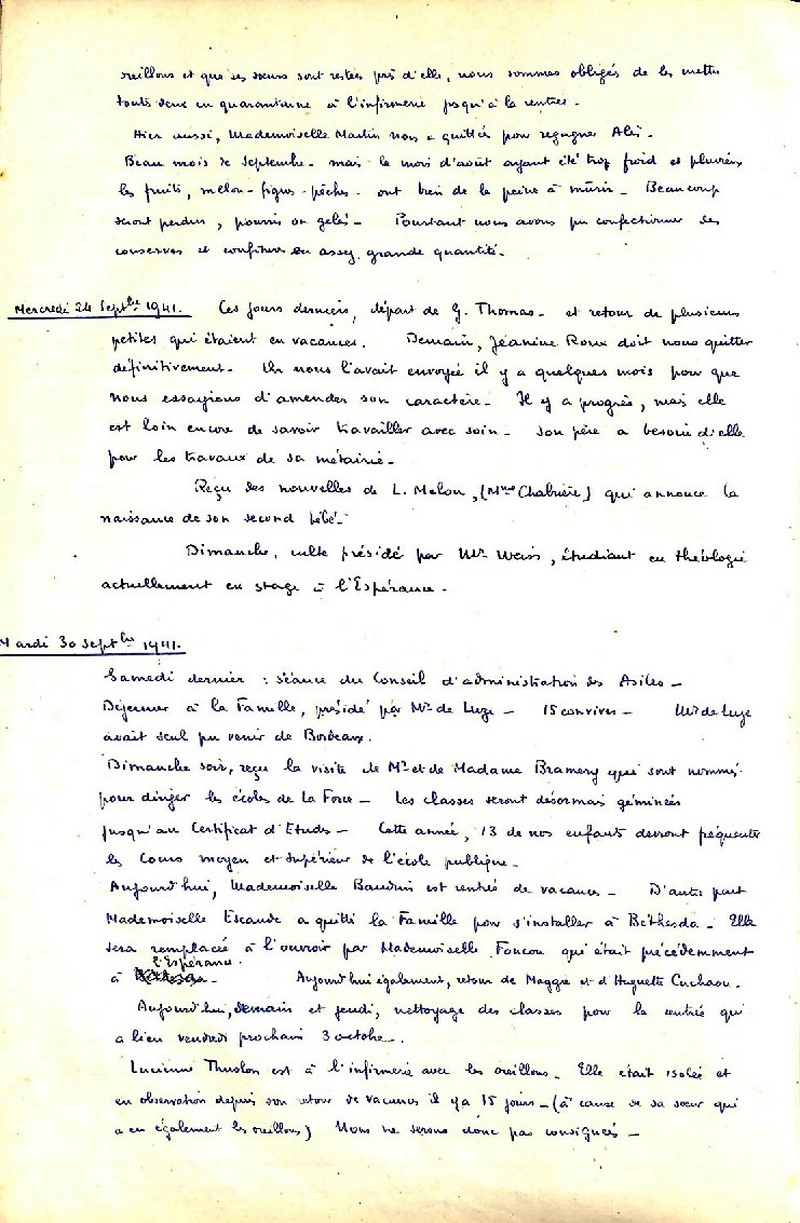 oreillons et que ses sœurs sont restées près d'elle, nous sommes obligés de les mettre
toutes deux en quarantaine à l'infirmerie jusqu'à la rentrée.
Hier aussi, Mademoiselle Martin nous a quittés pour regagner Alès.
Beau mois de Septembre - mais le mois d'août ayant été trop froid et pluvieux
les fruits, melon - figues - pêches - ont bien de la peine à mûrir - Beaucoup
seront perdus, pourris ou gelés - Pourtant nous avons pu confectionner des
conserves et confitures en assez grande quantité.
Mercredi 24 Septbre 1941. Ces jours derniers, départ de G. Thomas - et retour de plusieurs
petites qui étaient en vacances. Demain, Jeanine Roux doit nous quitter
définitivement - On nous l'avait envoyée il y a quelques mois pour que
nous essayions d'amender son caractère - Il y a progrès, mais elle
est loin encore de savoir travailler avec soin - Son père a besoin d'elle
pour les travaux de sa métairie -
Reçu des nouvelles de L. Melon, (Mme Chabrière) qui annonce la
naissance de son second bébé -
Dimanche, culte présidé par Mr Weiss, étudiant en théologie
actuellement en stage à l'Espérance.
Mardi 30 Septbre 1941.
Samedi dernier : séance du Conseil d'administration des Asiles -
Déjeuner à la Famille, présidé par Mr de Luze - 15 convives - Mr de Luze
avait seul pu venir de Bordeaux.
Dimanche soir, reçu la visite de Mr et de Madame Bramery qui sont nommés
pour diriger les écoles de La Force - Les classes seront désormais géminées
jusqu'au Certificat d'Etudes - Cette année, 13 de nos enfants devront fréquenter
les Cours moyen et supérieur de l'école publique -
Aujourd'hui, Mademoiselle Baudin est rentrée de vacances - D'autre part
Mademoiselle Escande a quitté la Famille pour s'installer à Béthesda - Elle
sera remplacée à l'ouvroir par Mademoiselle Foucou qui était précédemment
à l'Espérance. Aujourd'hui également, retour de Maggie et d'Huguette Cuchaou.
Aujourd'hui, demain et jeudi, nettoyage des classes pour la rentrée qui
a lieu vendredi prochain 3 octobre.
Lucienne est à l'infirmerie avec les oreillons - Elle était isolée et
en observation depuis son retour de vacances il y a 15 jours - (à cause de sa sœur qui
a eu également les oreillons) Nous ne serons donc pas consignés -